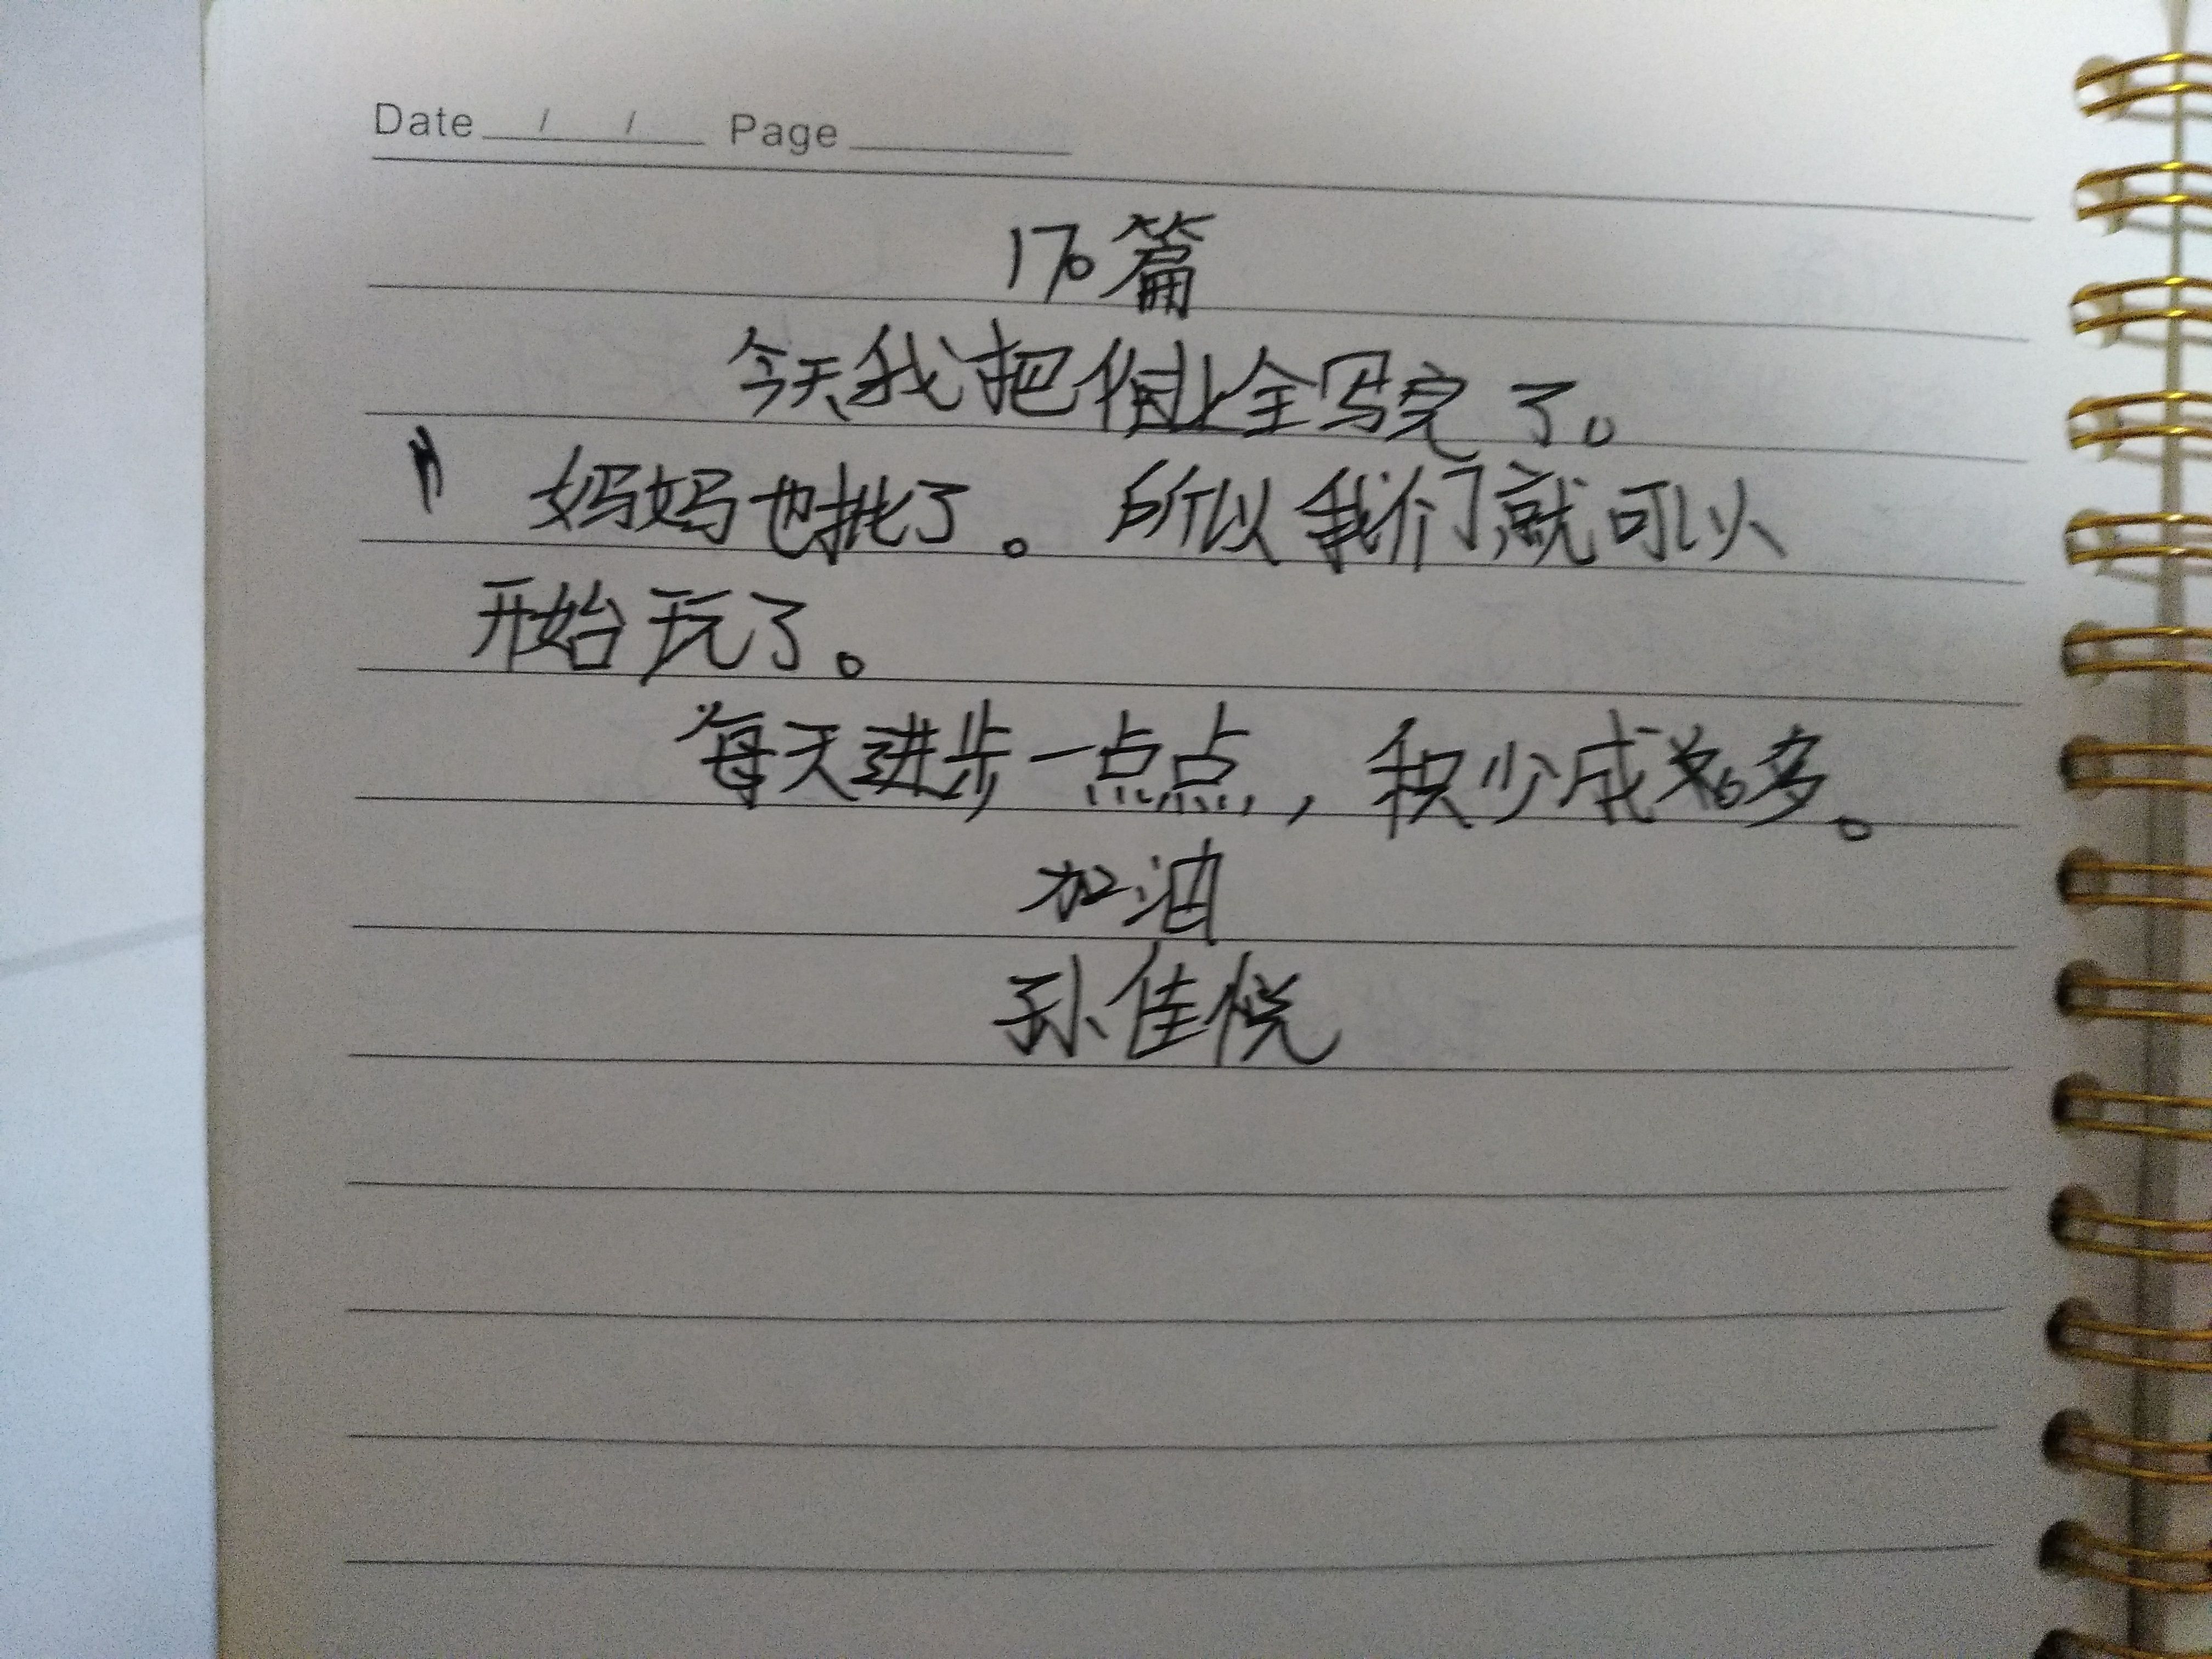 Date / / Page
170篇
今天我把作业全写完了。
妈妈也批了。所以我们就可以
开始玩了。
每天进步一点点，积少成多。
加油
孙佳悦